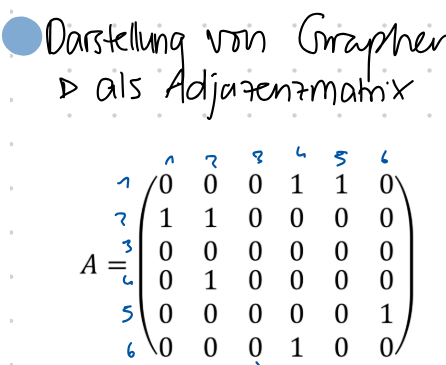 Darstellung von Graphen
▷ als Adjazenzmatrix
1 2 3 4 5 6
1 0 0 0 1 1 0
2 1 1 0 0 0 0
3 0 0 0 0 0 0
A = 4 0 1 0 0 0 0
5 0 0 0 0 0 1
6 0 0 0 1 0 0